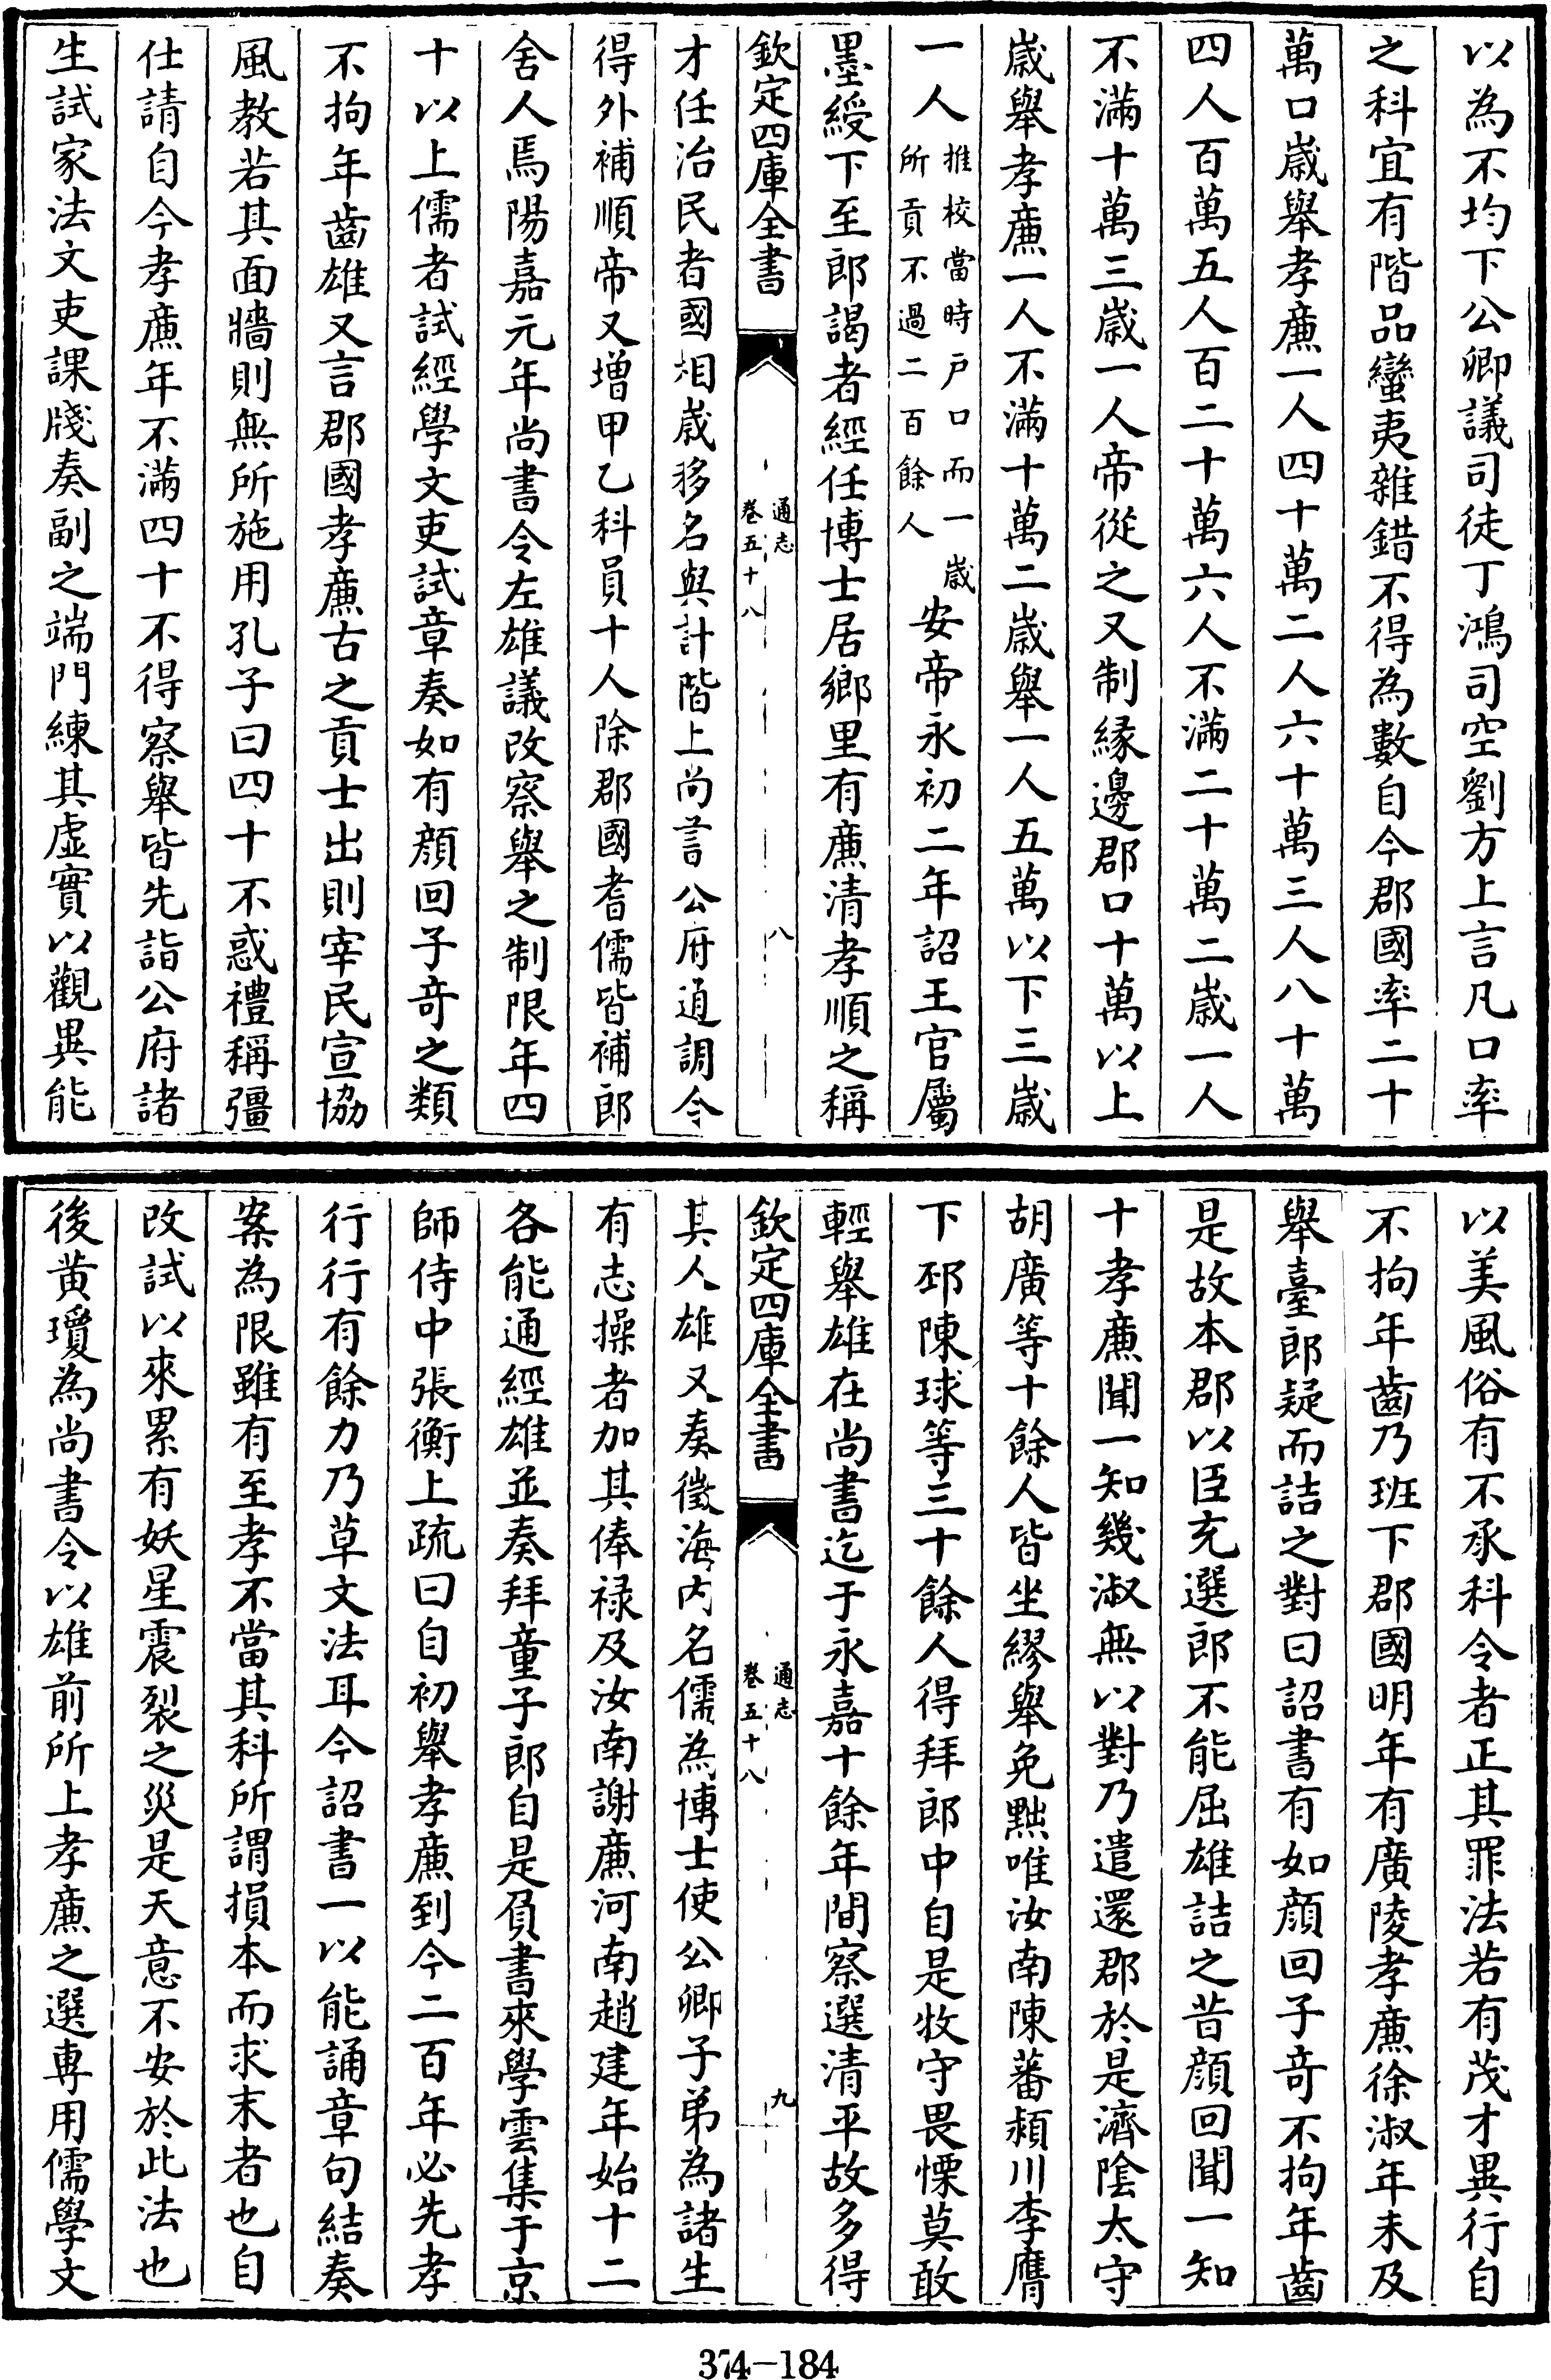 以為不均下公卿議司徒丁鴻司空劉方上言凡口率
之科宜有階品蠻夷雜錯不得為數自今郡國率二十
萬口嵗舉孝廉一人四十萬二人六十萬三人八十萬
四人百萬五人百二十萬六人不滿二十萬二嵗一人
不滿十萬三嵗一人帝從之又制緣邊郡口十萬以上
嵗舉孝廉一人不滿十萬二嵗舉一人五萬以下三嵗
一人推校當時戸口而一嵗所貢不過二百餘人安帝永初二年詔王官屬
墨綬下至郎謁者經任博士居鄉里有廉清孝順之稱
欽定四庫全書
通志
卷五十八
八
才任治民者國相嵗移名與計階上尚書公府通調令
得外補順帝又增甲乙科員十人除郡國耆儒皆補郎
舍人焉陽嘉元年尚書令左雄議改察舉之制限年四
十以上儒者試經學文吏試章奏如有顔回子竒之類
不拘年齒雄又言郡國孝廉古之貢士出則宰民宣協
風教若其面牆則無所施用孔子曰四十不惑禮稱彊
仕請自今孝廉年不滿四十不得察舉皆先詣公府諸
生試家法文吏課牋奏副之端門練其虛實以觀異能
以美風俗有不承科令者正其罪法若有茂才異行自
不拘年齒乃班下郡國明年有廣陵孝廉徐淑年未及
舉臺郎疑而詰之對曰詔書有如顔回子竒不拘年齒
是故本郡以臣充選郎不能屈雄詰之昔顔回聞一知
十孝廉聞一知幾淑無以對乃遣還郡於是濟隂太守
胡廣等十餘人皆坐繆舉免黜唯汝南陳蕃潁川李膺
下邳陳球等三十餘人得拜郎中自是牧守畏慄莫敢
輕舉雄在尚書迄于永嘉十餘年間察選清平故多得
欽定四庫全書
通志
卷五十八
九
其人雄又奏徵海内名儒為博士使公卿子弟為諸生
有志操者加其俸禄及汝南謝廉河南趙建年始十二
各能通經雄並奏拜童子郎自是負書來學雲集于京
師侍中張衡上疏曰自初舉孝廉到今二百年必先孝
行行有餘力乃草文法耳今詔書一以能誦章句結奏
案為限雖有至孝不當其科所謂損本而求末者也自
改試以來累有妖星震裂之災是天意不安於此法也
後黄瓊為尚書令以雄前所上孝廉之選専用儒學文
374-184